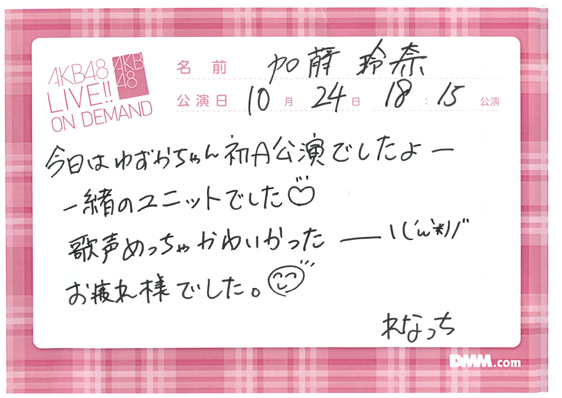 AKB48
LIVE!!
ON DEMAND
AKB
48
名前 加藤 玲奈
公演日 10月 24日 18:15 公演
今日はゆずかちゃん初A公演でしたよー
一緒のユニットでした♡
歌声めっちゃかわいかったーー\(´ω`*)/
お疲れ様でした。
れなっち
DMM.com